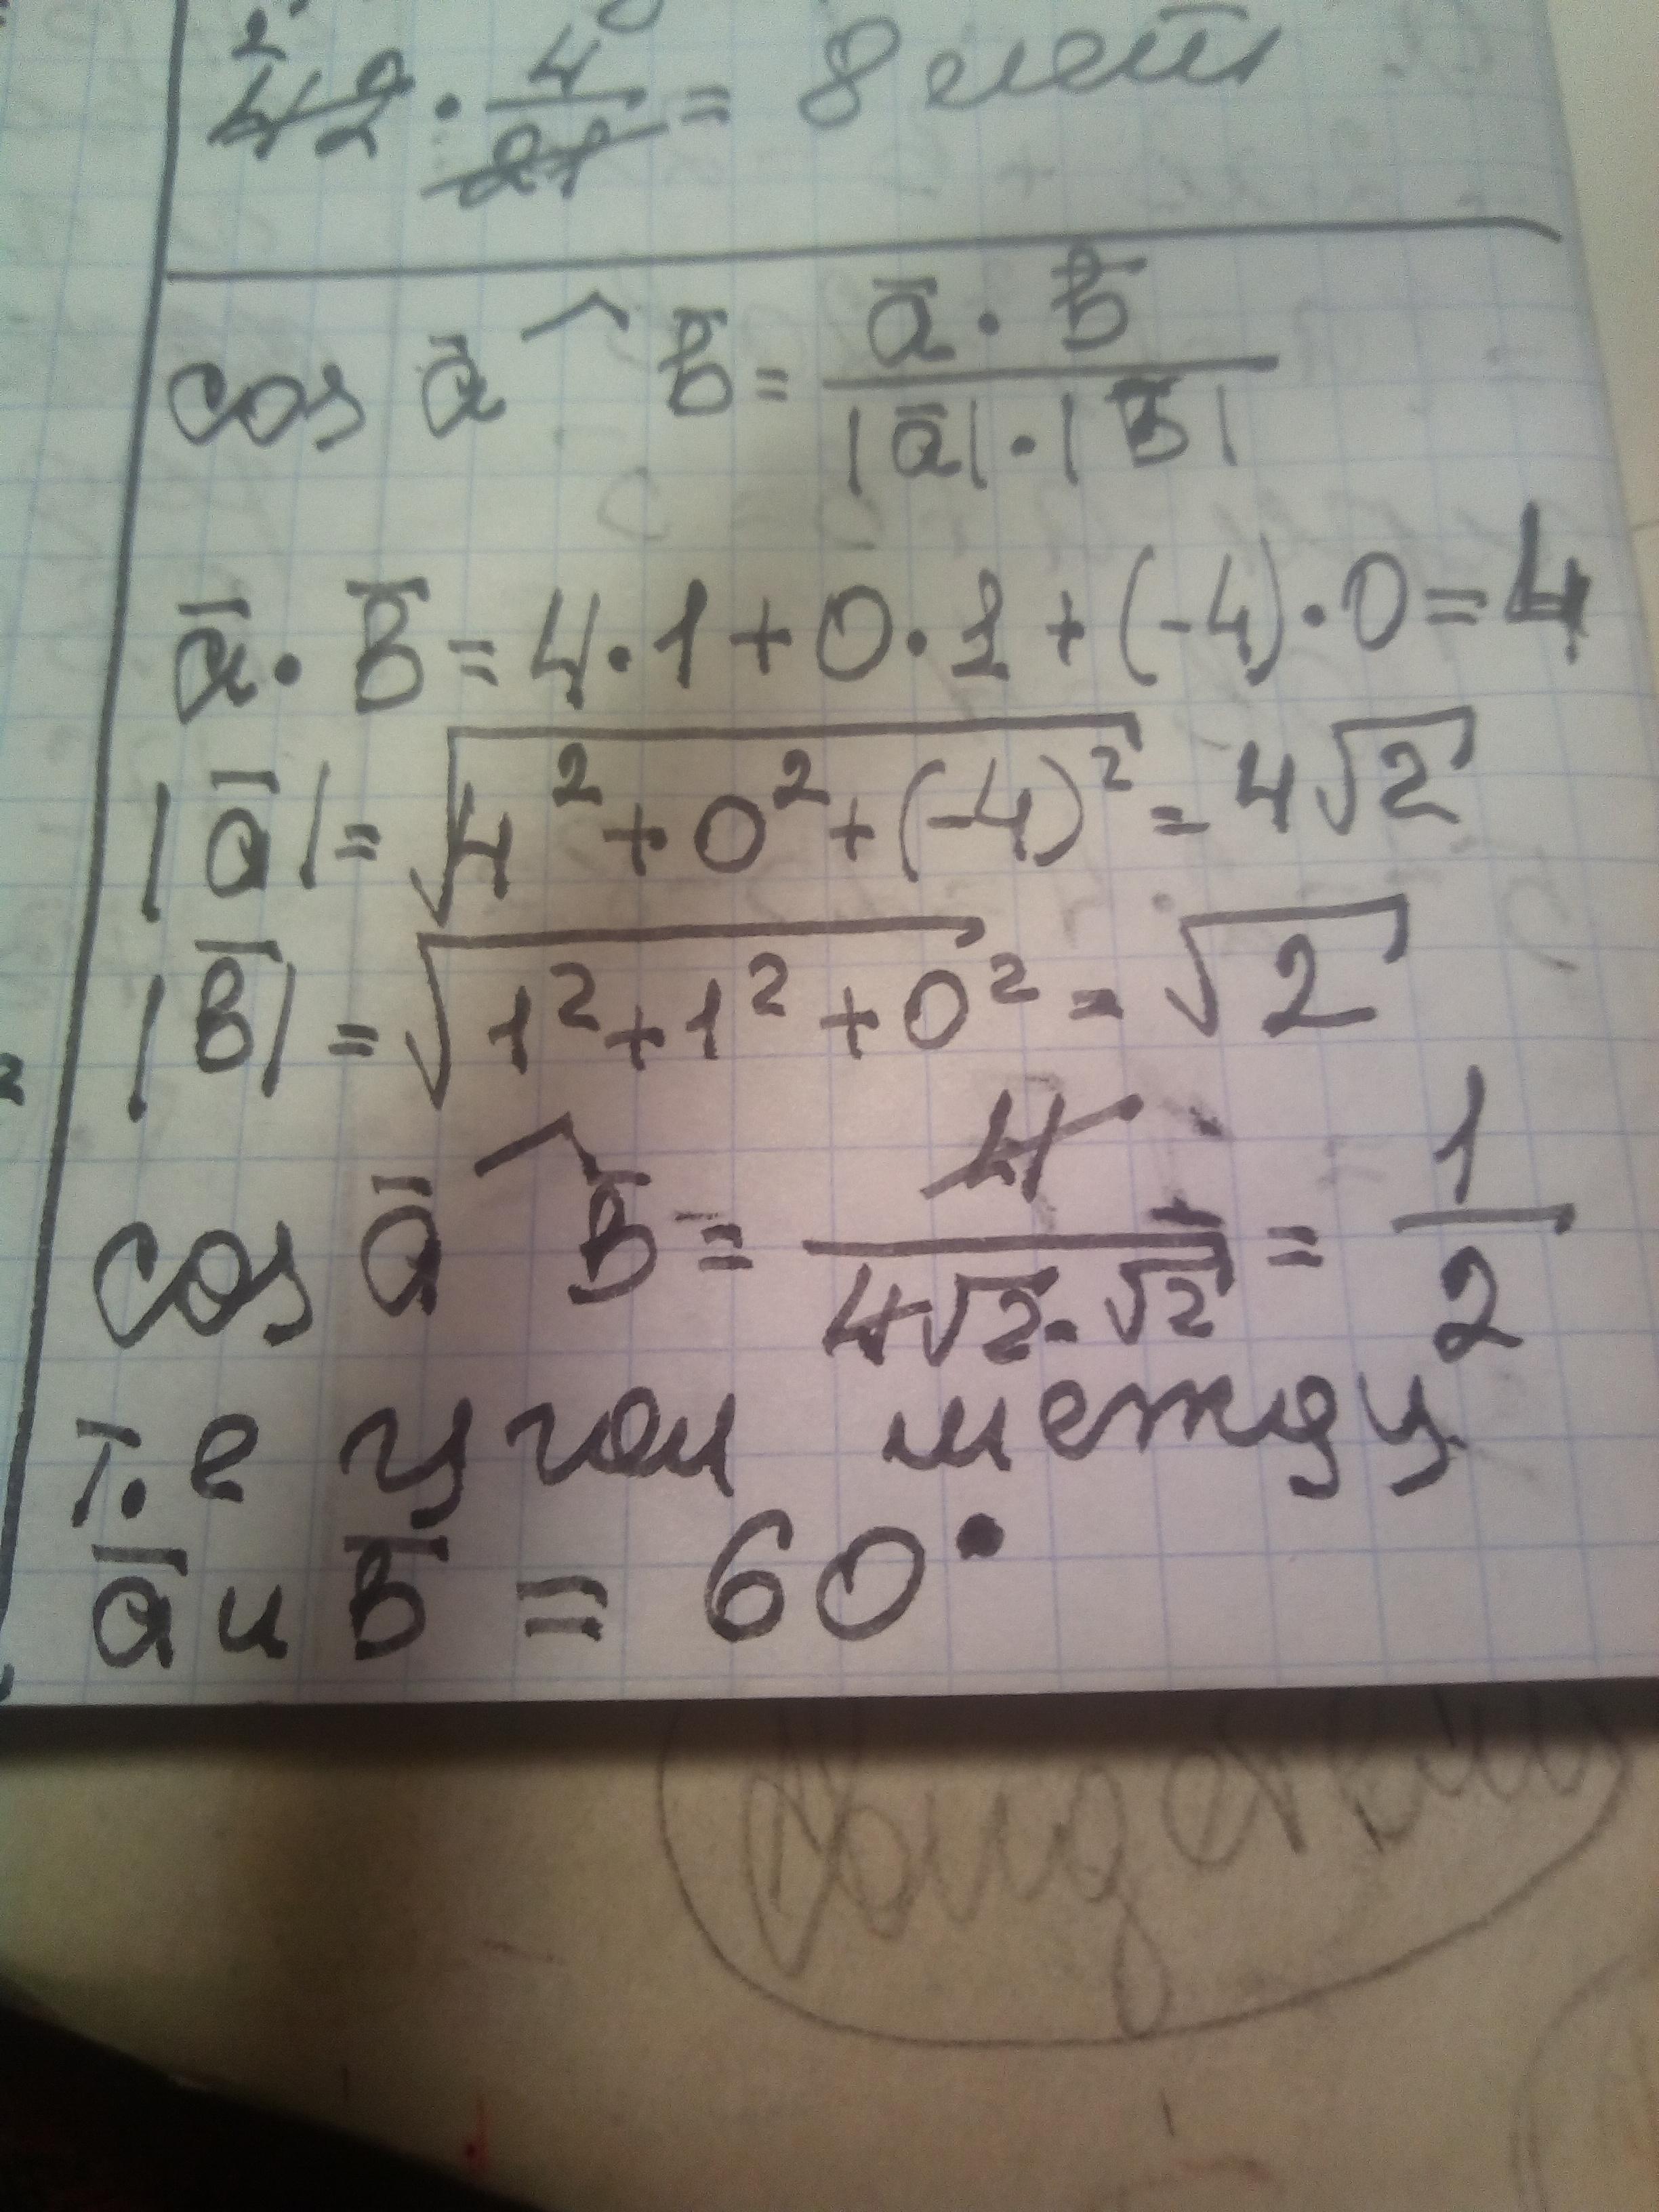 2
42 · 4/21 = 8
cos ā ^ b̄ = ā · b̄ / |ā| · |b̄|
ā · b̄ = 4 · 1 + 0 · 1 + (-4) · 0 = 4
|ā| = √4² + 0² + (-4)² = 4√2
|b̄| = √1² + 1² + 0² = √2
cos ā ^ b̄ = 4 / 4√2 · √2 = 1/2
т.е угол между
ā и b̄ = 60°